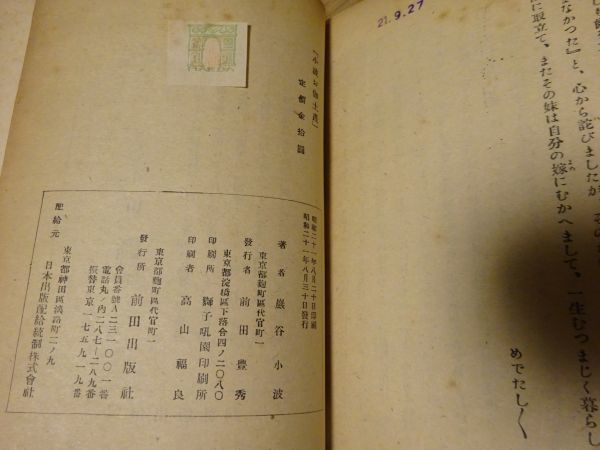 21.9.27
なかつた』と、心から詫びましたが
に取立て、またその妹は自分の嫁にむかへまして、一生むつまじく暮らし
めでたし〳〵
定價金拾圓
昭和二十一年八月二十日印刷
昭和二十一年八月三十日發行
著者 巖谷小波
東京都麴町區代官町一
發行者 前田豊秀
東京都淀橋區下落合四ノ二〇八〇
印刷所 獅子吼園印刷所
印刷者 高山福良
東京都麴町區代官町一
發行所 前田出版社
會員番號A二三一〇〇一番
電話丸ノ内二八七-二八九番
振替東京一七五九一九番
東京都神田區淡路町二ノ九
配給元 日本出版配給統制株式會社